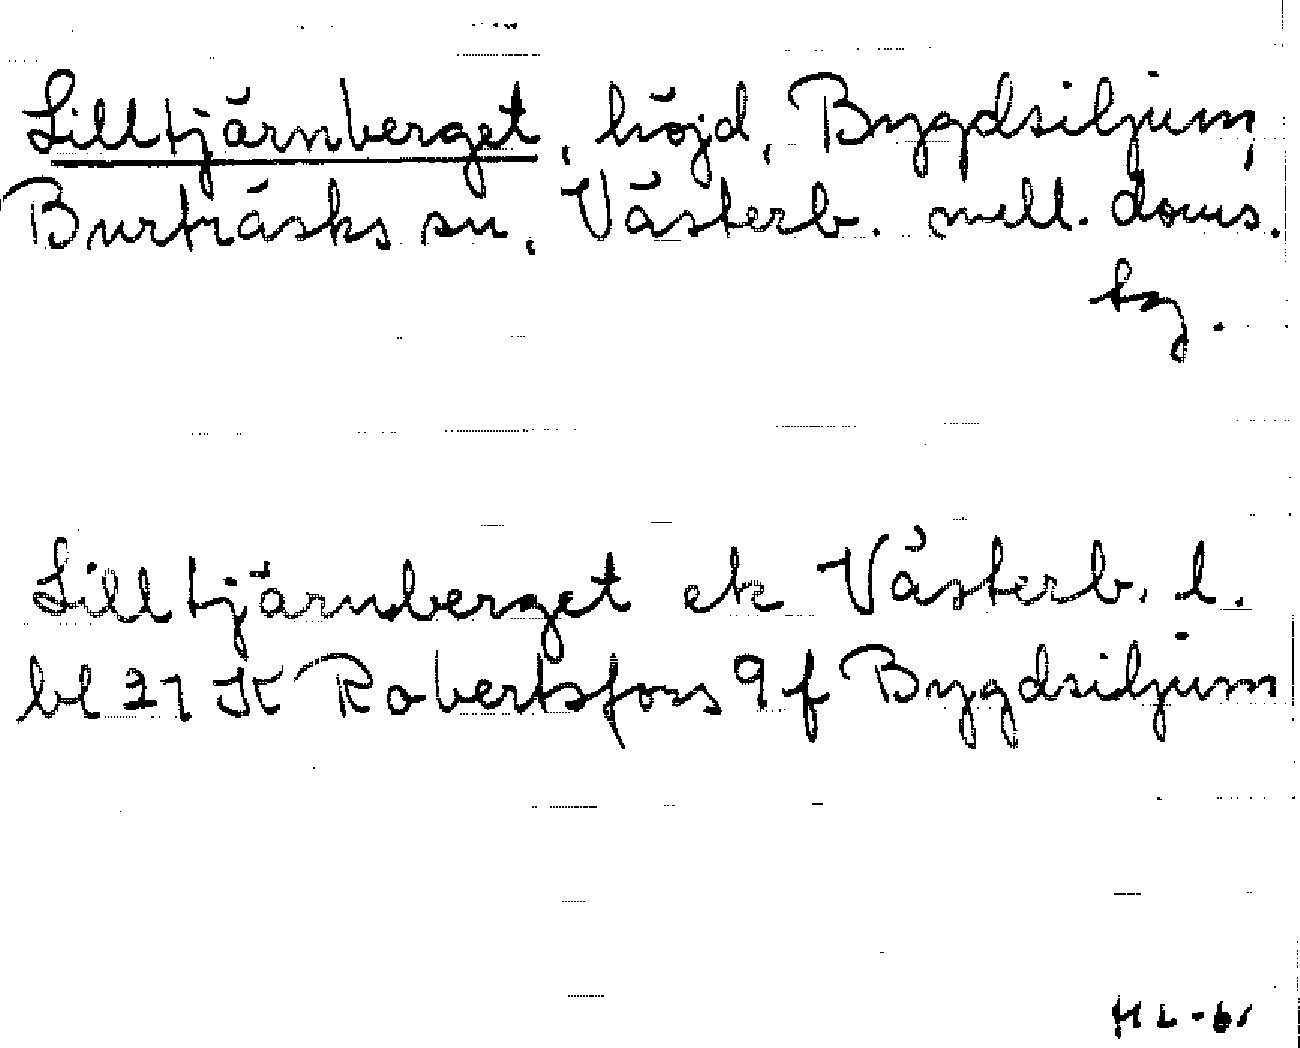 Lilltjärnberget, höjd, Bygdsiljum,
Burträsks sn, Västerb. mell. doms.
tg.
Lilltjärnberget ek Västerb. l.
bl 21 K Robertsfors 9 f Bygdsiljum
HL-61